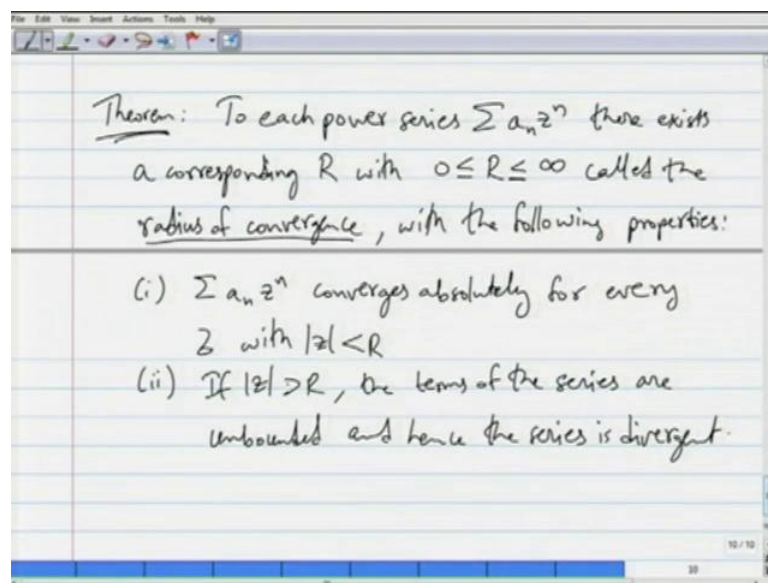 File Edit View Insert Actions Tools Help
Theorem: To each power series Σ aₙzⁿ there exists
a corresponding R with 0 ≤ R ≤ ∞ called the
radius of convergence, with the following properties:
(i) Σ aₙ zⁿ converges absolutely for every
z with |z| < R
(ii) If |z| > R, the terms of the series are
unbounded and hence the series is divergent.
10 / 10
10